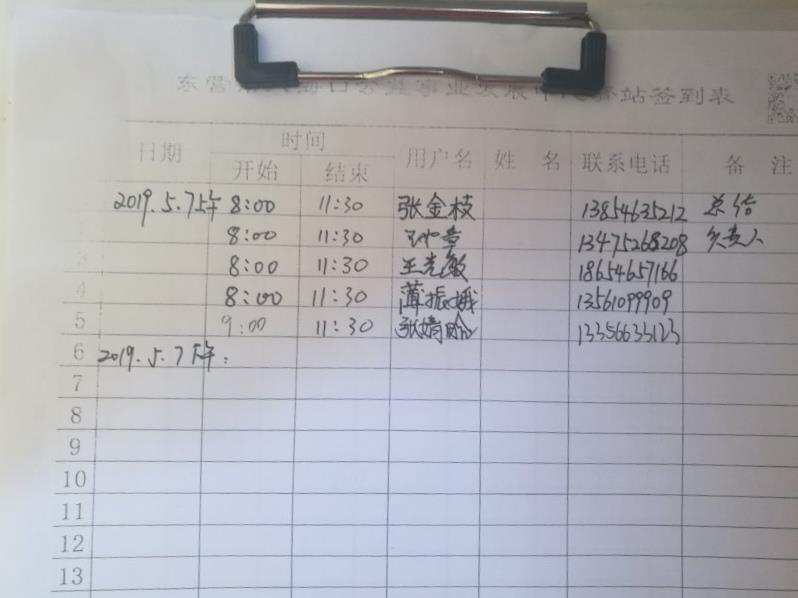 站签到表
日期 时间 用户名 姓 名 联系电话 备 注
开始 结束
2019.5.7上午 8:00 11:30 张金枝 13854635212 总结
8:00 11:30 13475268208 负责人
3 8:00 11:30 王光敏 18654657166
4 8:00 11:30 薄振娥 13561099909
5 9:00 11:30 张婧 13356633123
6 2019.5.7下午:
7
8
9
10
11
12
13